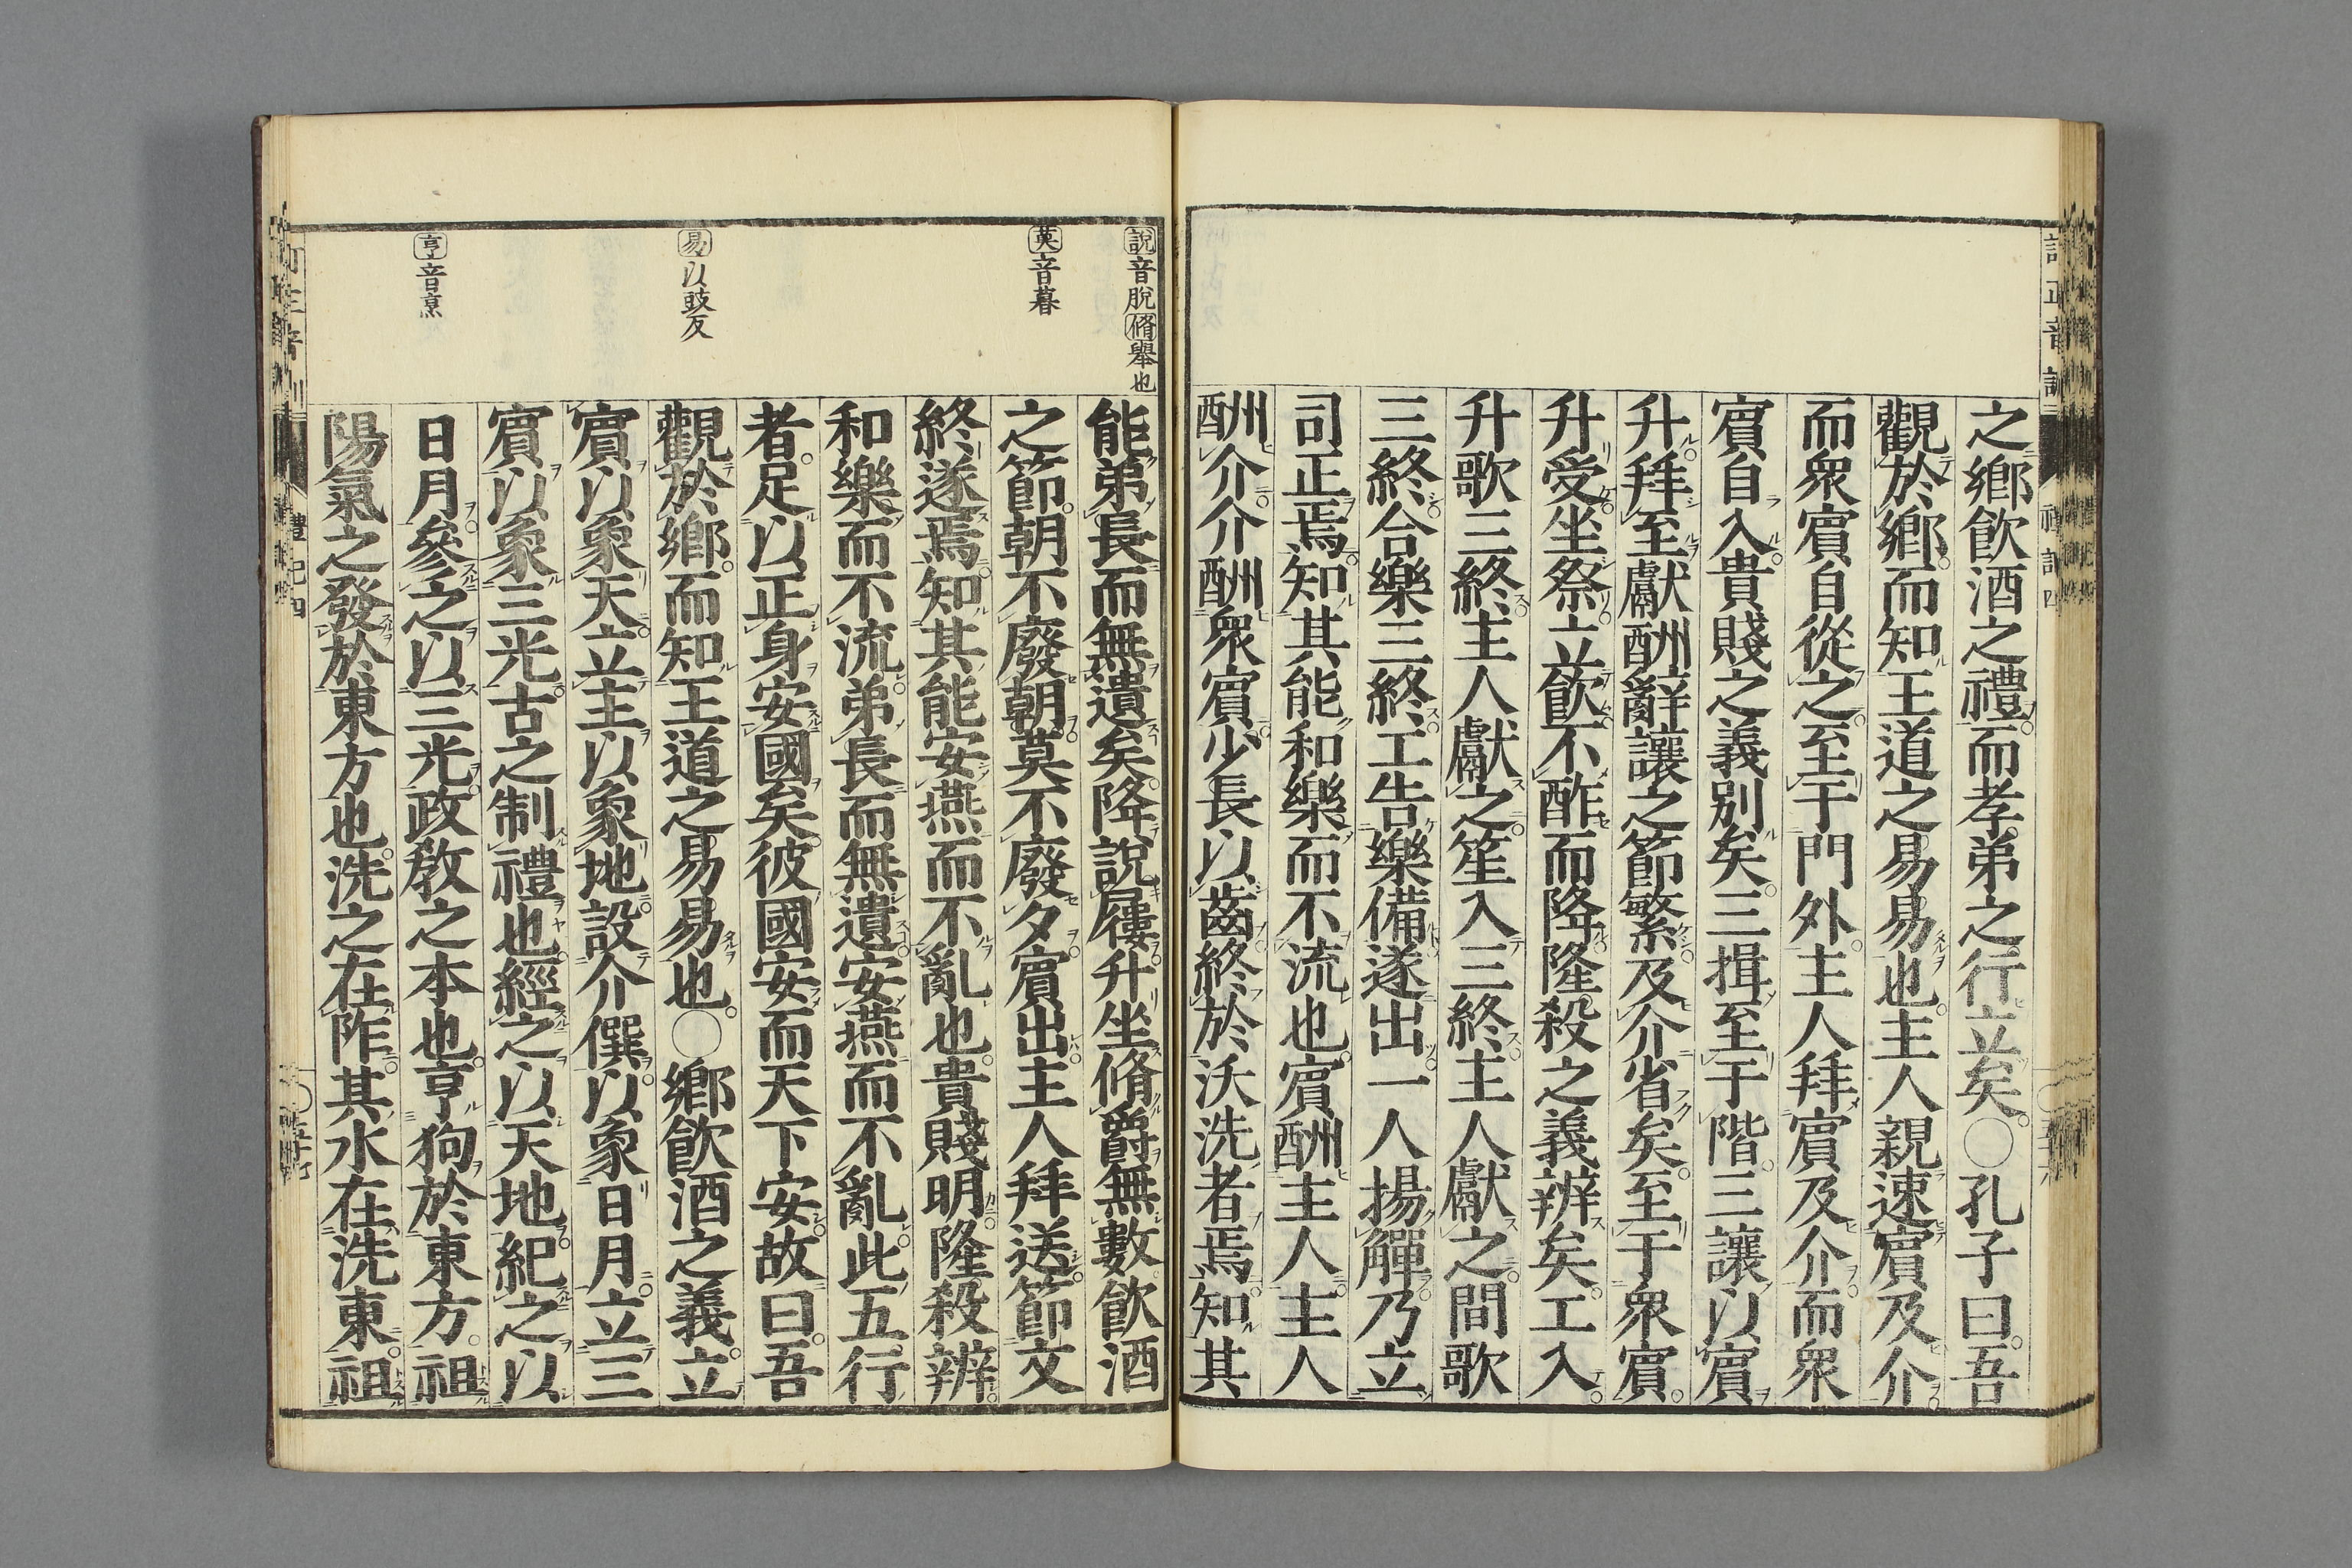 之鄉飲酒之禮而孝弟之行立矣○孔子曰吾
觀於鄉而知王道之易易也主人親速賓及介
而衆賓自從之至于門外主人拜賓及介而衆
賓自入貴賤之義別矣三揖至于階三讓以賓
升拜至獻酬辭讓之節繁及介省矣至于衆賓
升受坐祭立飮不酢而降隆殺之義辨矣工入
升歌三終主人獻之笙入三終主人獻之間歌
三終合樂三終工告樂備遂出一人揚觶乃立
司正焉知其能和樂而不流也賓酬主人主人
酬介介酬衆賓少長以齒終於沃洗者焉知其
說音脫脩舉也
莫音暮
易以豉反
亨音烹
能弟長而無遺矣降說屨升坐脩爵無數飮酒
之節朝不廢朝莫不廢夕賓出主人拜送節文
終遂焉知其能安燕而不亂也貴賤明隆殺辨
和樂而不流弟長而無遺安燕而不亂此五行
者足以正身安國矣彼國安而天下安故曰吾
觀於鄉而知王道之易易也○鄉飮酒之義立
賓以象天立主以象地設介僎以象日月立三
賓以象三光古之制禮也經之以天地紀之以
日月參之以三光政敎之本也亨狗於東方祖
陽氣之發於東方也洗之在阼其水在洗東祖
禮記四